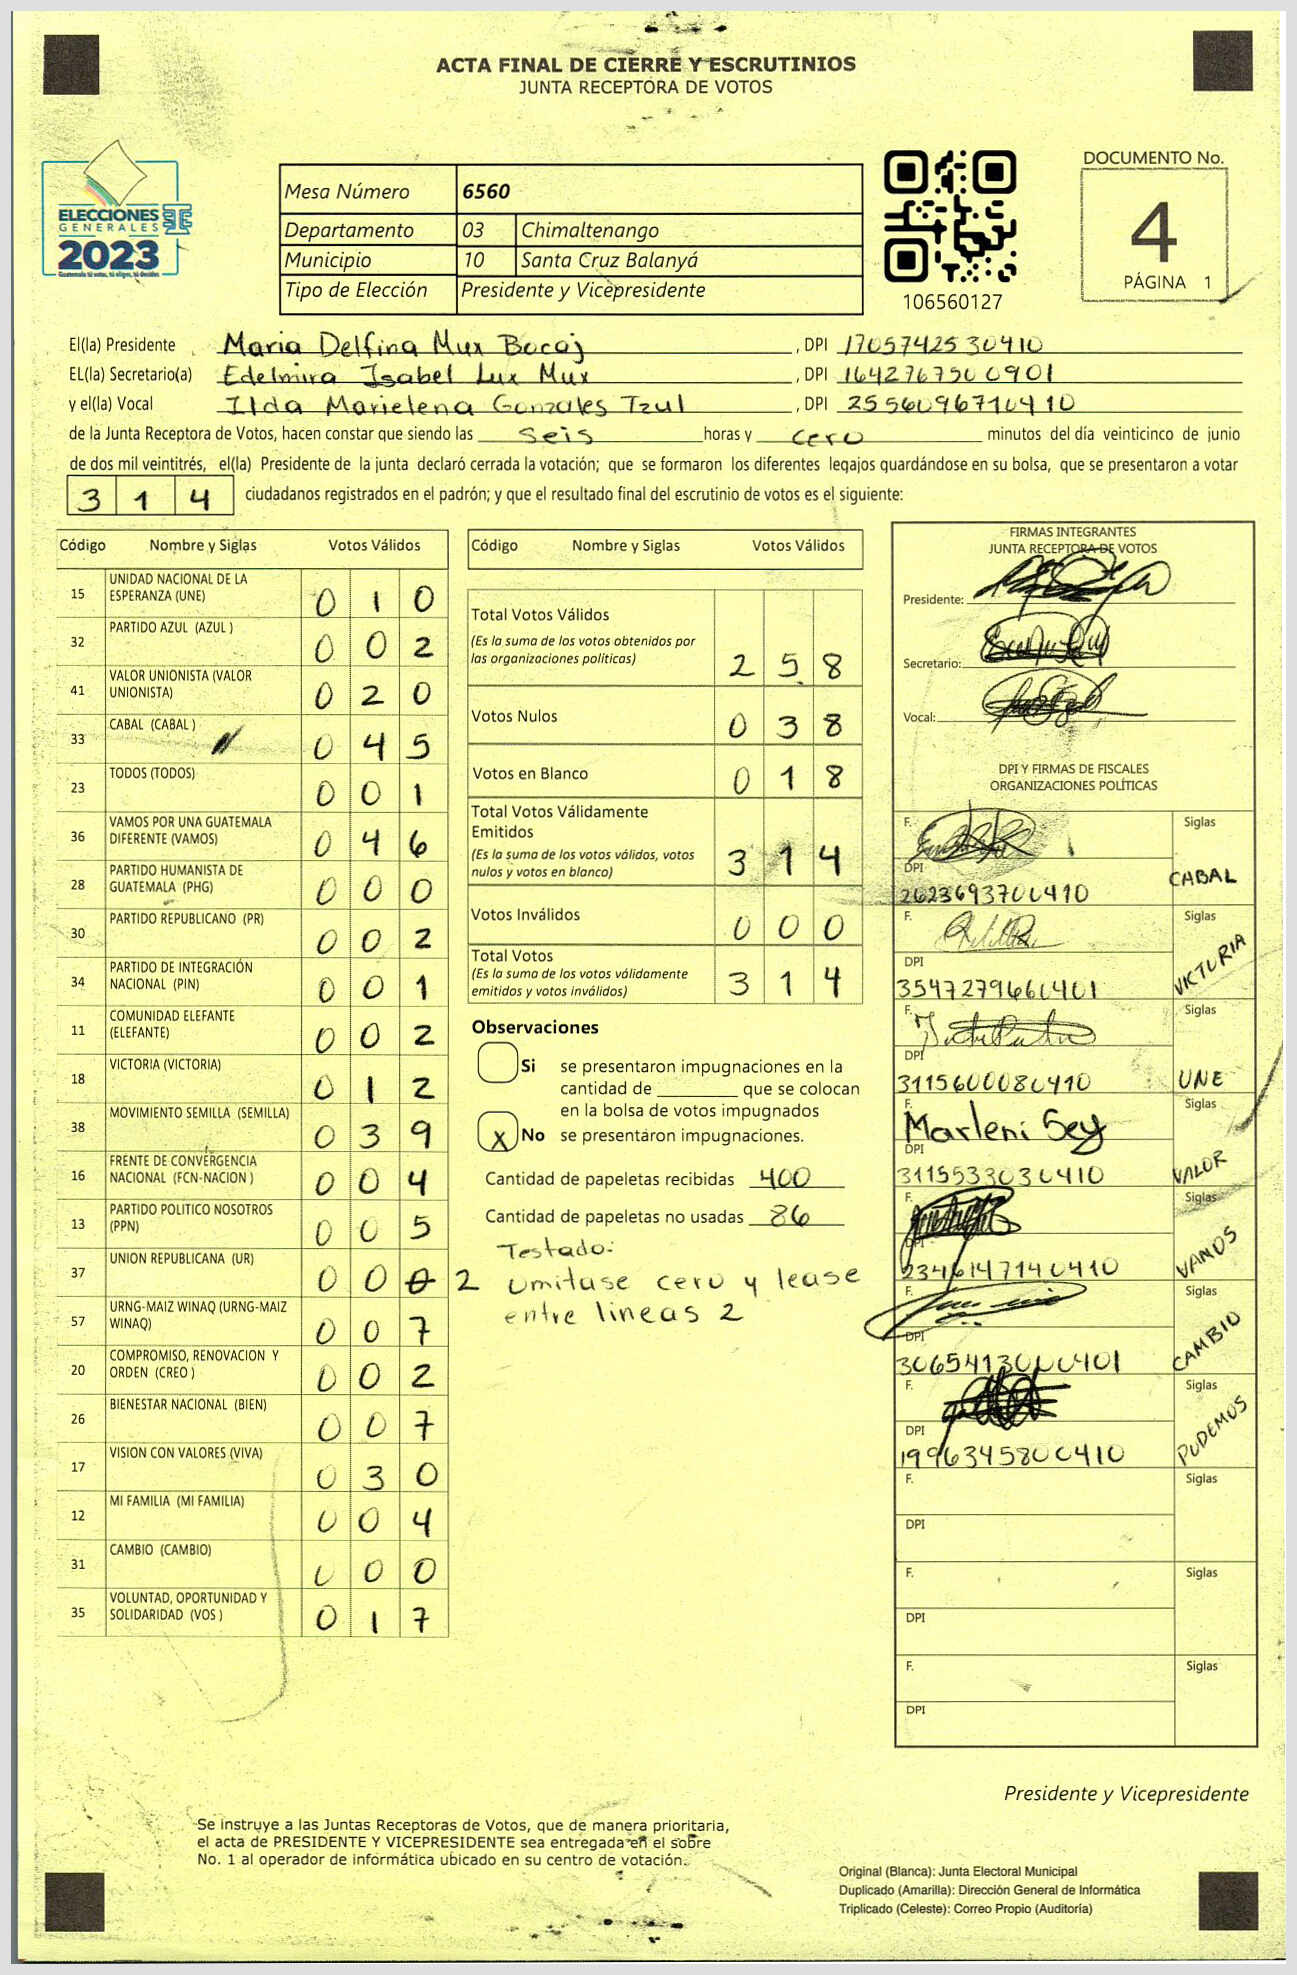 ACTA FINAL DE CIERRE Y ESCRUTINIOS
JUNTA RECEPTORA DE VOTOS
ELECCIONES
GENERALES
2023
Guatemala tú votas, tú eliges, tú decides
Mesa Número 6560
Departamento 03 Chimaltenango
Municipio 10 Santa Cruz Balanyá
Tipo de Elección Presidente y Vicepresidente
106560127
DOCUMENTO No.
4
PÁGINA 1
El(la) Presidente Maria Delfina Mux Bocaj , DPI 1705742530410
EL(la) Secretario(a) Edelmira Isabel Lux Mux , DPI 1642767500901
y el(la) Vocal Ilda Marielena Gonzales Tzul , DPI 2556096710410
de la Junta Receptora de Votos, hacen constar que siendo las seis horas y cero minutos del día veinticinco de junio
de dos mil veintitrés, el(la) Presidente de la junta declaró cerrada la votación; que se formaron los diferentes legajos guardándose en su bolsa, que se presentaron a votar
3 1 4 ciudadanos registrados en el padrón; y que el resultado final del escrutinio de votos es el siguiente:
Código Nombre y Siglas Votos Válidos
15 UNIDAD NACIONAL DE LA ESPERANZA (UNE) 0 1 0
32 PARTIDO AZUL (AZUL ) 0 0 2
41 VALOR UNIONISTA (VALOR UNIONISTA) 0 2 0
33 CABAL (CABAL ) 0 4 5
23 TODOS (TODOS) 0 0 1
36 VAMOS POR UNA GUATEMALA DIFERENTE (VAMOS) 0 4 6
28 PARTIDO HUMANISTA DE GUATEMALA (PHG) 0 0 0
30 PARTIDO REPUBLICANO (PR) 0 0 2
34 PARTIDO DE INTEGRACIÓN NACIONAL (PIN) 0 0 1
11 COMUNIDAD ELEFANTE (ELEFANTE) 0 0 2
18 VICTORIA (VICTORIA) 0 1 2
38 MOVIMIENTO SEMILLA (SEMILLA) 0 3 9
16 FRENTE DE CONVERGENCIA NACIONAL (FCN-NACION ) 0 0 4
13 PARTIDO POLITICO NOSOTROS (PPN) 0 0 5
37 UNION REPUBLICANA (UR) 0 0 0 2
57 URNG-MAIZ WINAQ (URNG-MAIZ WINAQ) 0 0 7
20 COMPROMISO, RENOVACION Y ORDEN (CREO ) 0 0 2
26 BIENESTAR NACIONAL (BIEN) 0 0 7
17 VISION CON VALORES (VIVA) 0 3 0
12 MI FAMILIA (MI FAMILIA) 0 0 4
31 CAMBIO (CAMBIO) 0 0 0
35 VOLUNTAD, OPORTUNIDAD Y SOLIDARIDAD (VOS ) 0 1 7
Código Nombre y Siglas Votos Válidos
Total Votos Válidos
(Es la suma de los votos obtenidos por
las organizaciones políticas) 2 5 8
Votos Nulos 0 3 8
Votos en Blanco 0 1 8
Total Votos Válidamente
Emitidos
(Es la suma de los votos válidos, votos
nulos y votos en blanco) 3 1 4
Votos Inválidos 0 0 0
Total Votos
(Es la suma de los votos válidamente
emitidos y votos inválidos) 3 1 4
Observaciones
Si se presentaron impugnaciones en la
cantidad de ________ que se colocan
en la bolsa de votos impugnados
X No se presentaron impugnaciones.
Cantidad de papeletas recibidas 400
Cantidad de papeletas no usadas 86
Testado:
omitase cero y lease
entre lineas 2
FIRMAS INTEGRANTES
JUNTA RECEPTORA DE VOTOS
Presidente:
Secretario:
Vocal:
DPI Y FIRMAS DE FISCALES
ORGANIZACIONES POLÍTICAS
F. Siglas
DPI CABAL
2623693700410
F. Siglas
DPI VICTORIA
3547279660401
F. Siglas
DPI UNE
3115600080410
F. Marleni Sey Siglas
DPI VALOR
3115533030410
F. Siglas
DPI VAMOS
2346147140410
F. Siglas
DPI CAMBIO
3065413000401
F. Siglas
DPI PODEMOS
1996345800410
F. Siglas
DPI
F. Siglas
DPI
F. Siglas
DPI
Presidente y Vicepresidente
Se instruye a las Juntas Receptoras de Votos, que de manera prioritaria,
el acta de PRESIDENTE Y VICEPRESIDENTE sea entregada en el sobre
No. 1 al operador de informática ubicado en su centro de votación.
Original (Blanca): Junta Electoral Municipal
Duplicado (Amarilla): Dirección General de Informática
Triplicado (Celeste): Correo Propio (Auditoría)